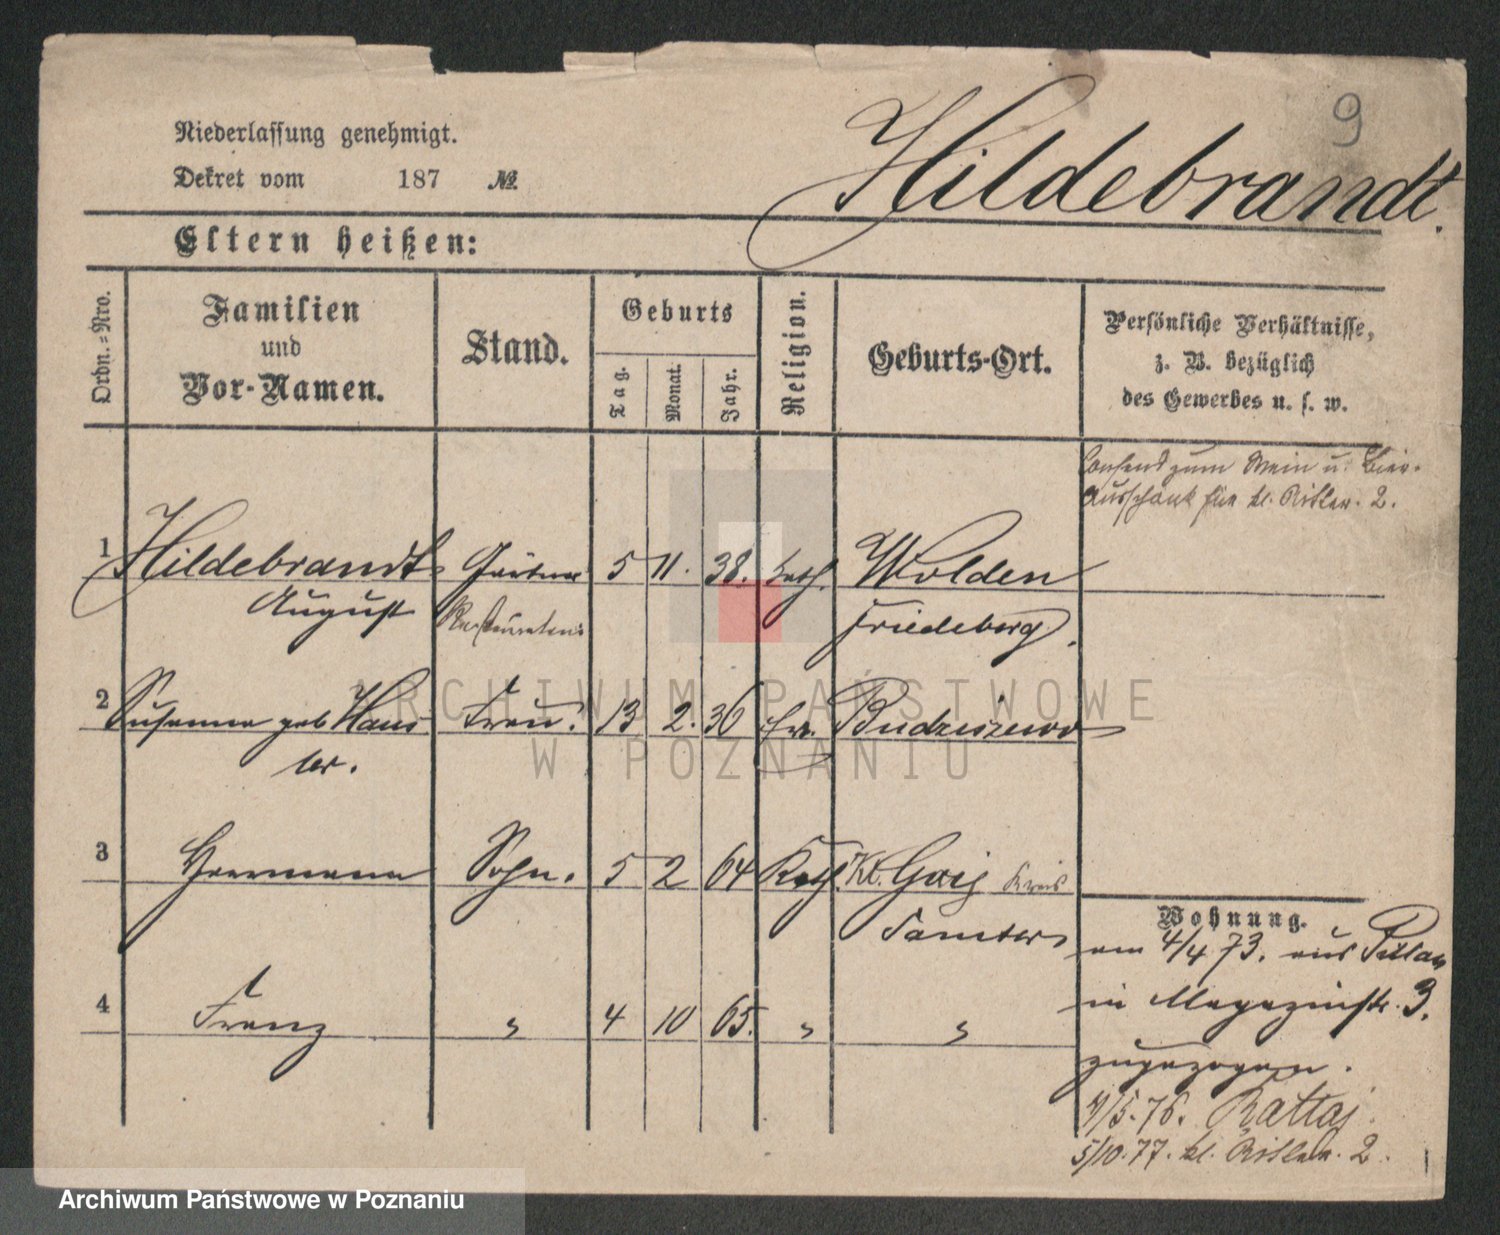 9
Niederlassung genehmigt.
Hildebrandt.
Dekret vom 187 №
Eltern heißen:
Ordn.=Nro.
Familien
und
Vor-Namen.
Stand.
Geburts
Tag.
Monat.
Jahr.
Religion.
Geburts-Ort.
Persönliche Verhältnisse,
z. B. bezüglich
des Gewerbes u. s. w.
Consens zum Wein u. Bier-
Ausschank für kl. Ritter. 2.
1 Hildebrandt 5 11. 38. kath. Wolden
August Friedeberg.
2 Susanna geb Haus Frau. 13 2. 36 ev. Budziszewo
ler.
3 Herrmann Sohn. 5 2 64 Kath. Kl. Gaj Kreis
Samter
Wohnung.
am 4/4 73. aus
in Magazinstr. 3.
zugezogen.
4 Franz " 4 10 65. " "
4/5.76. Rattaj
5/10.77. kl. Ritter. 2.
ARCHIWUM PAŃSTWOWE
W POZNANIU
Archiwum Państwowe w Poznaniu